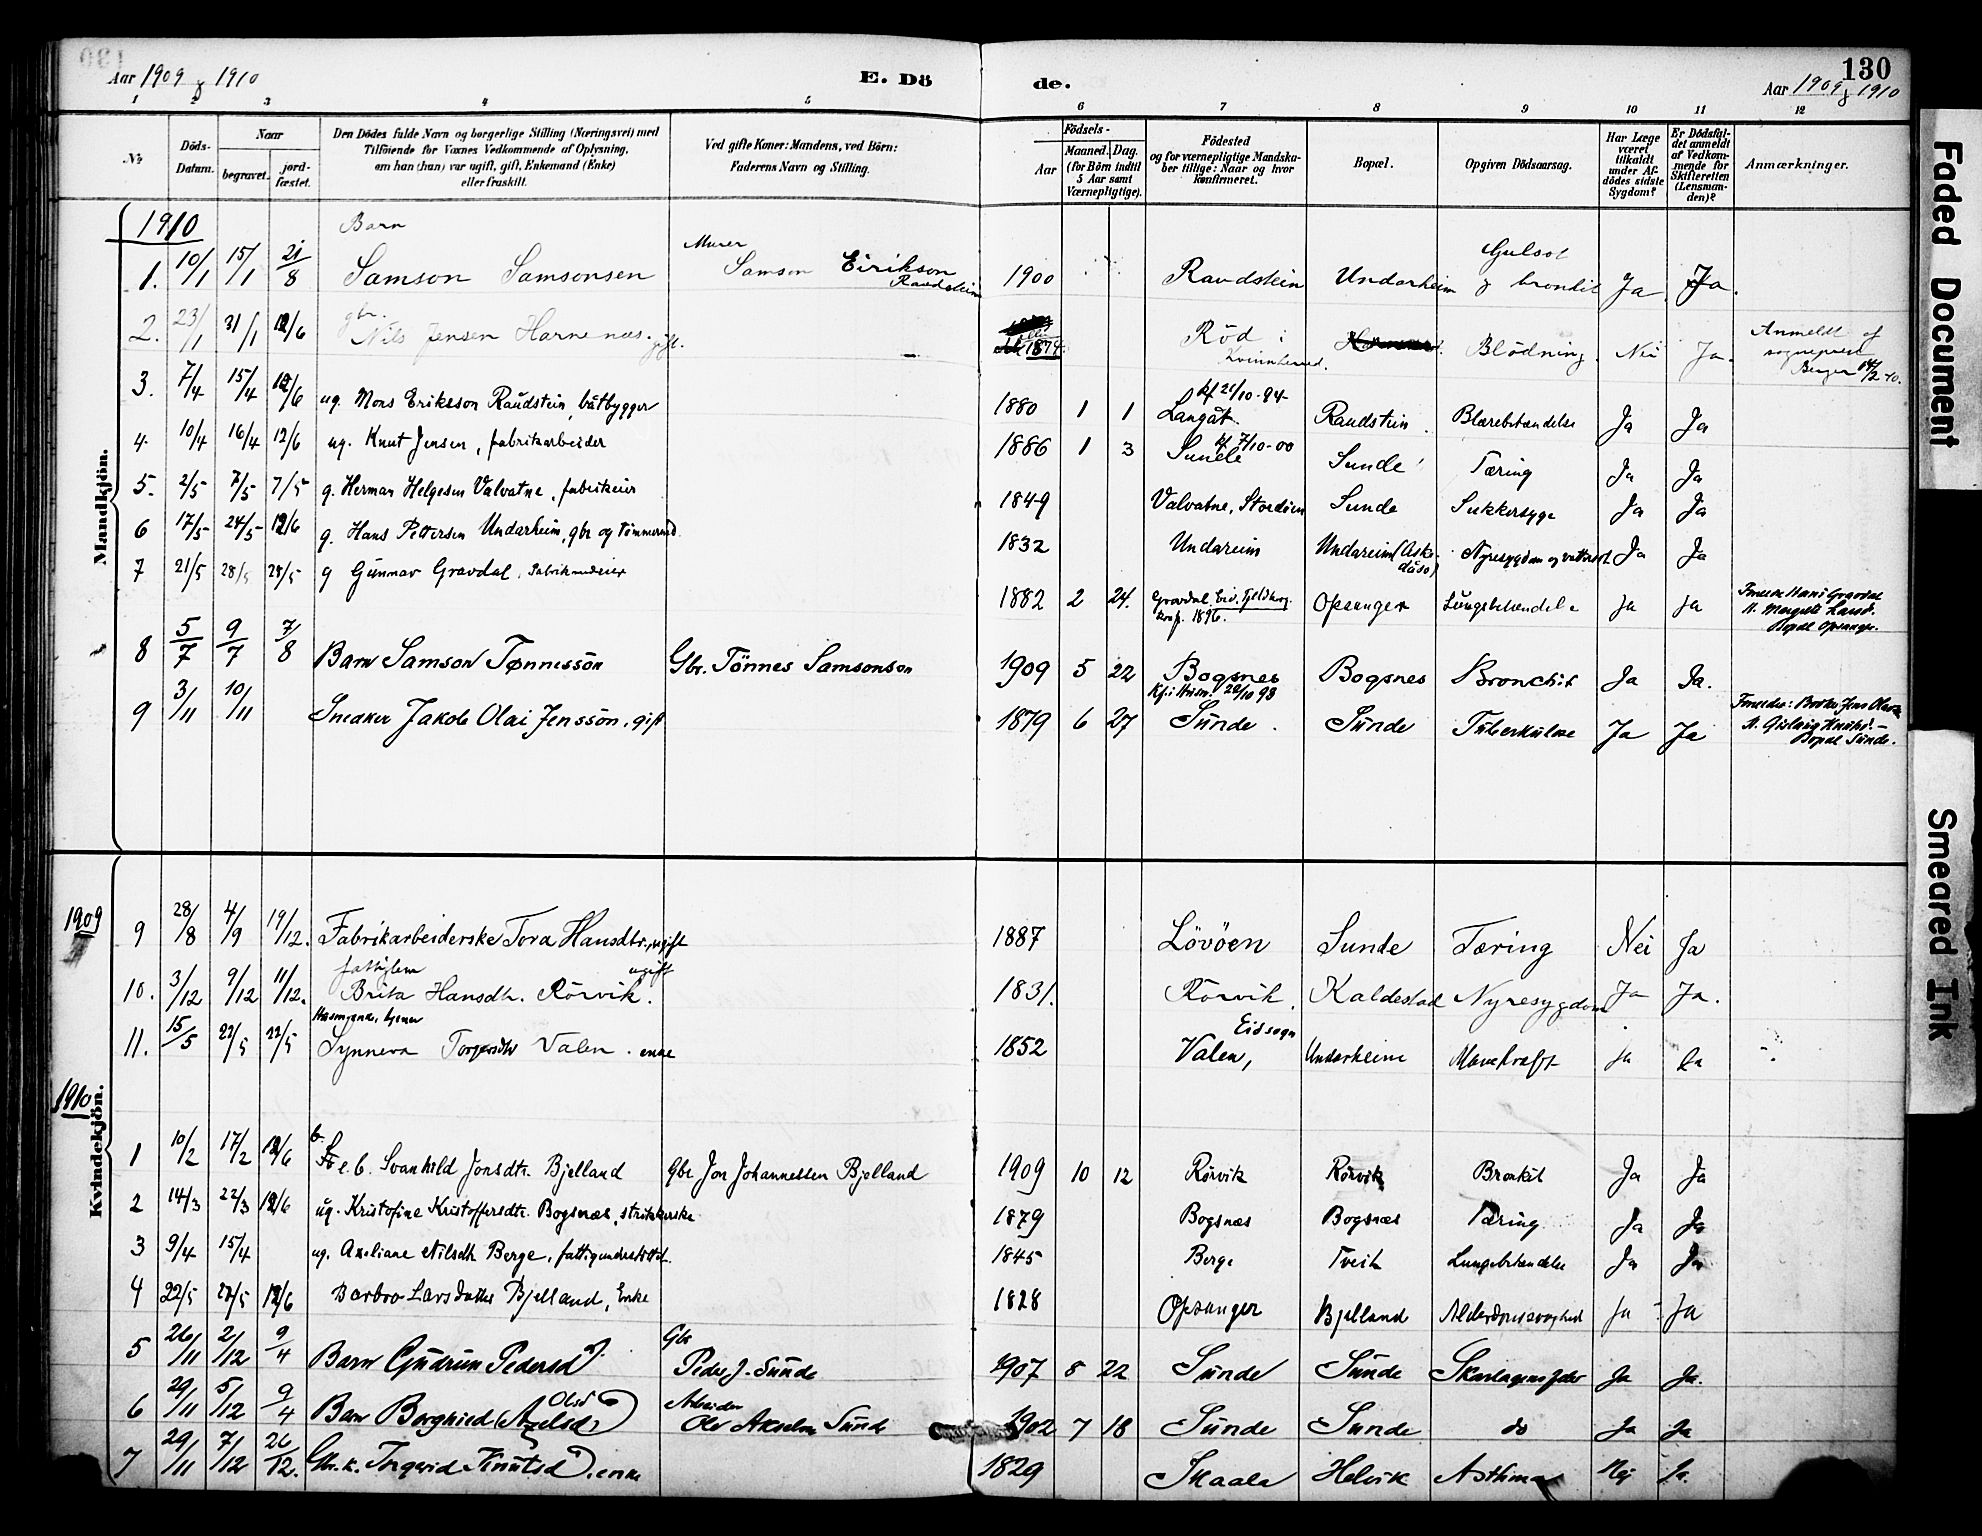 130
Aar 1909 & 1910
E. Dö
de.
Aar 1909 & 1910
1 2 3 4 5 6 7 8 9 10 11 12
No
Döds-Datum.
Naar
begravet.
jord-fæstet.
Den Dödes fulde Navn og borgerlige Stilling (Næringsvei) med
Tilföiende for Voxnes Vedkommende af Oplysning,
om han (hun) var ugift, gift, Enkemand (Enke)
eller fraskilt.
Ved gifte Koner: Mandens, ved Börn:
Faderens Navn og Stilling.
Födsels-
Aar
Maaned. Dag.
(for Börn indtil
5 Aar samt
Værnepligtige).
Födested
og for værnepligtige Mandska-
ber tillige: Naar og hvor
konfirmeret.
Bopæl.
Opgiven Dödsaarsag.
Har Læge
været
tilkaldt
under Af-
dödes sidste
Sygdom?
Er Dödsfal-
det anmeldt
af Vedkom-
mende for
Skifteretten
(Lensman-
den)?
Anmærkninger.
Mandkjön.
1910
1. 10/1 15/1 21/8 Barn Samson Samsonsen Murer Samson Eirikson Raudstein 1900 Raudstein Undarheim Gulsot & bronkit Ja Ja.
2. 23/1 31/1 12/6 gbr. Nils Jensen Harnenæs. gift. 1874 Röd i Kvinnherred. Blödning. Nei Ja. Anmeldt af sogneprest Berger 14/2 10.
3. 7/4 15/4 12/6 ug. Mons Eriksson Raudstein, båtbygger 1880 1 1 kf 21/10-94 Langåt Raudstein. Blærebetændelse Ja Ja
4. 10/4 16/4 12/6 ug. Knut Jensen, fabrikarbeider 1886 1 3 kf 7/10-00 Sunde Sunde Tæring Ja Ja
5. 2/5 7/5 7/5 g. Herman Helgesen Valvatne, fabrikeier 1849 Valvatne, Stordöen Sunde Sukkersyge Ja Ja
6 17/5 24/5 12/6 g. Hans Pettersen Undarheim, gbr og tömmermd. 1832 Undareim Undareim Nyresygdom og vattersot Ja Ja
7 21/5 28/5 28/5 g Gunnar Gravdal, 1882 2 24. Gravdal Eid. Fjelberg konf. 1896. Opsanger Lungebetændelse Ja Ja Gravdal Bopæl Opsanger.
8 5/7 9/7 7/8 Barn Samson Tønnesson Gbr. Tönnes Samsonson 1909 5 22 Bogsnes Bogsnes Bronchit Ja Ja.
9 3/11 10/11 Snedker Jakob Olai Jensson, gift 1879 6 27 Sunde. Sunde Tuberkulose Ja Ja Bopæl Sunde.
Kvindekjön.
1909
9 28/8 4/9 19/12. Fabrikarbeiderske Tora Hansdtr., ugift 1887 Lövöen Sunde Tæring Nei Ja
10. 3/12 9/12 11/12. fattiglem Brita Hansdtr. Rörvik. ugift 1831. Rörvik. Kaldestad Nyresygdom Ja Ja.
11. 15/5 22/5 22/5 Synneva Torgersdtr Valen. enke 1852 Eid sogn Valen, Undarheim Mavekræft Ja Ja
1910
1 10/2 17/2 12/6 b. Svanhild Jonsdtr. Bjelland Gbr Jon Johannessen Bjelland 1909 10 12 Rörvik Rörvik Bronkit Ja Ja
2 14/3 22/3 12/6 ug. Kristofine Kristoffersdtr. Bogsnæs, strikkerske 1879 Bogsnæs Bogsnæs Tæring Ja Ja
3 9/4 15/4 ug. Axeliane Nilsdtr Berge, fattigunderstöttet. 1845 Berge Tveit Lungebetændelse Ja Ja
4 22/5 27/5 12/6 Barbro Larsdatter Bjelland, Enke 1828 Opsanger Bjelland Alderdomssvaghed Ja Ja
5 26/11 2/12 9/4 Barn Gudrun Pedersd. Gbr Peder J. Sunde 1907 8 22 Sunde Sunde Skarlagensfeber Ja Ja.
6 29/11 5/12 9/4 Barn Borghied (Axelsd) Olsd Arbeider Olav Akselsen Sunde 1902 7 18 Sunde Sunde do Ja Ja
7 29/11 7/12 26/12. Gbr.k. Ingerid Knutsd. enke 1829 Skaala Helvik Asthma Nej Ja.
Faded Document
Smeared Ink